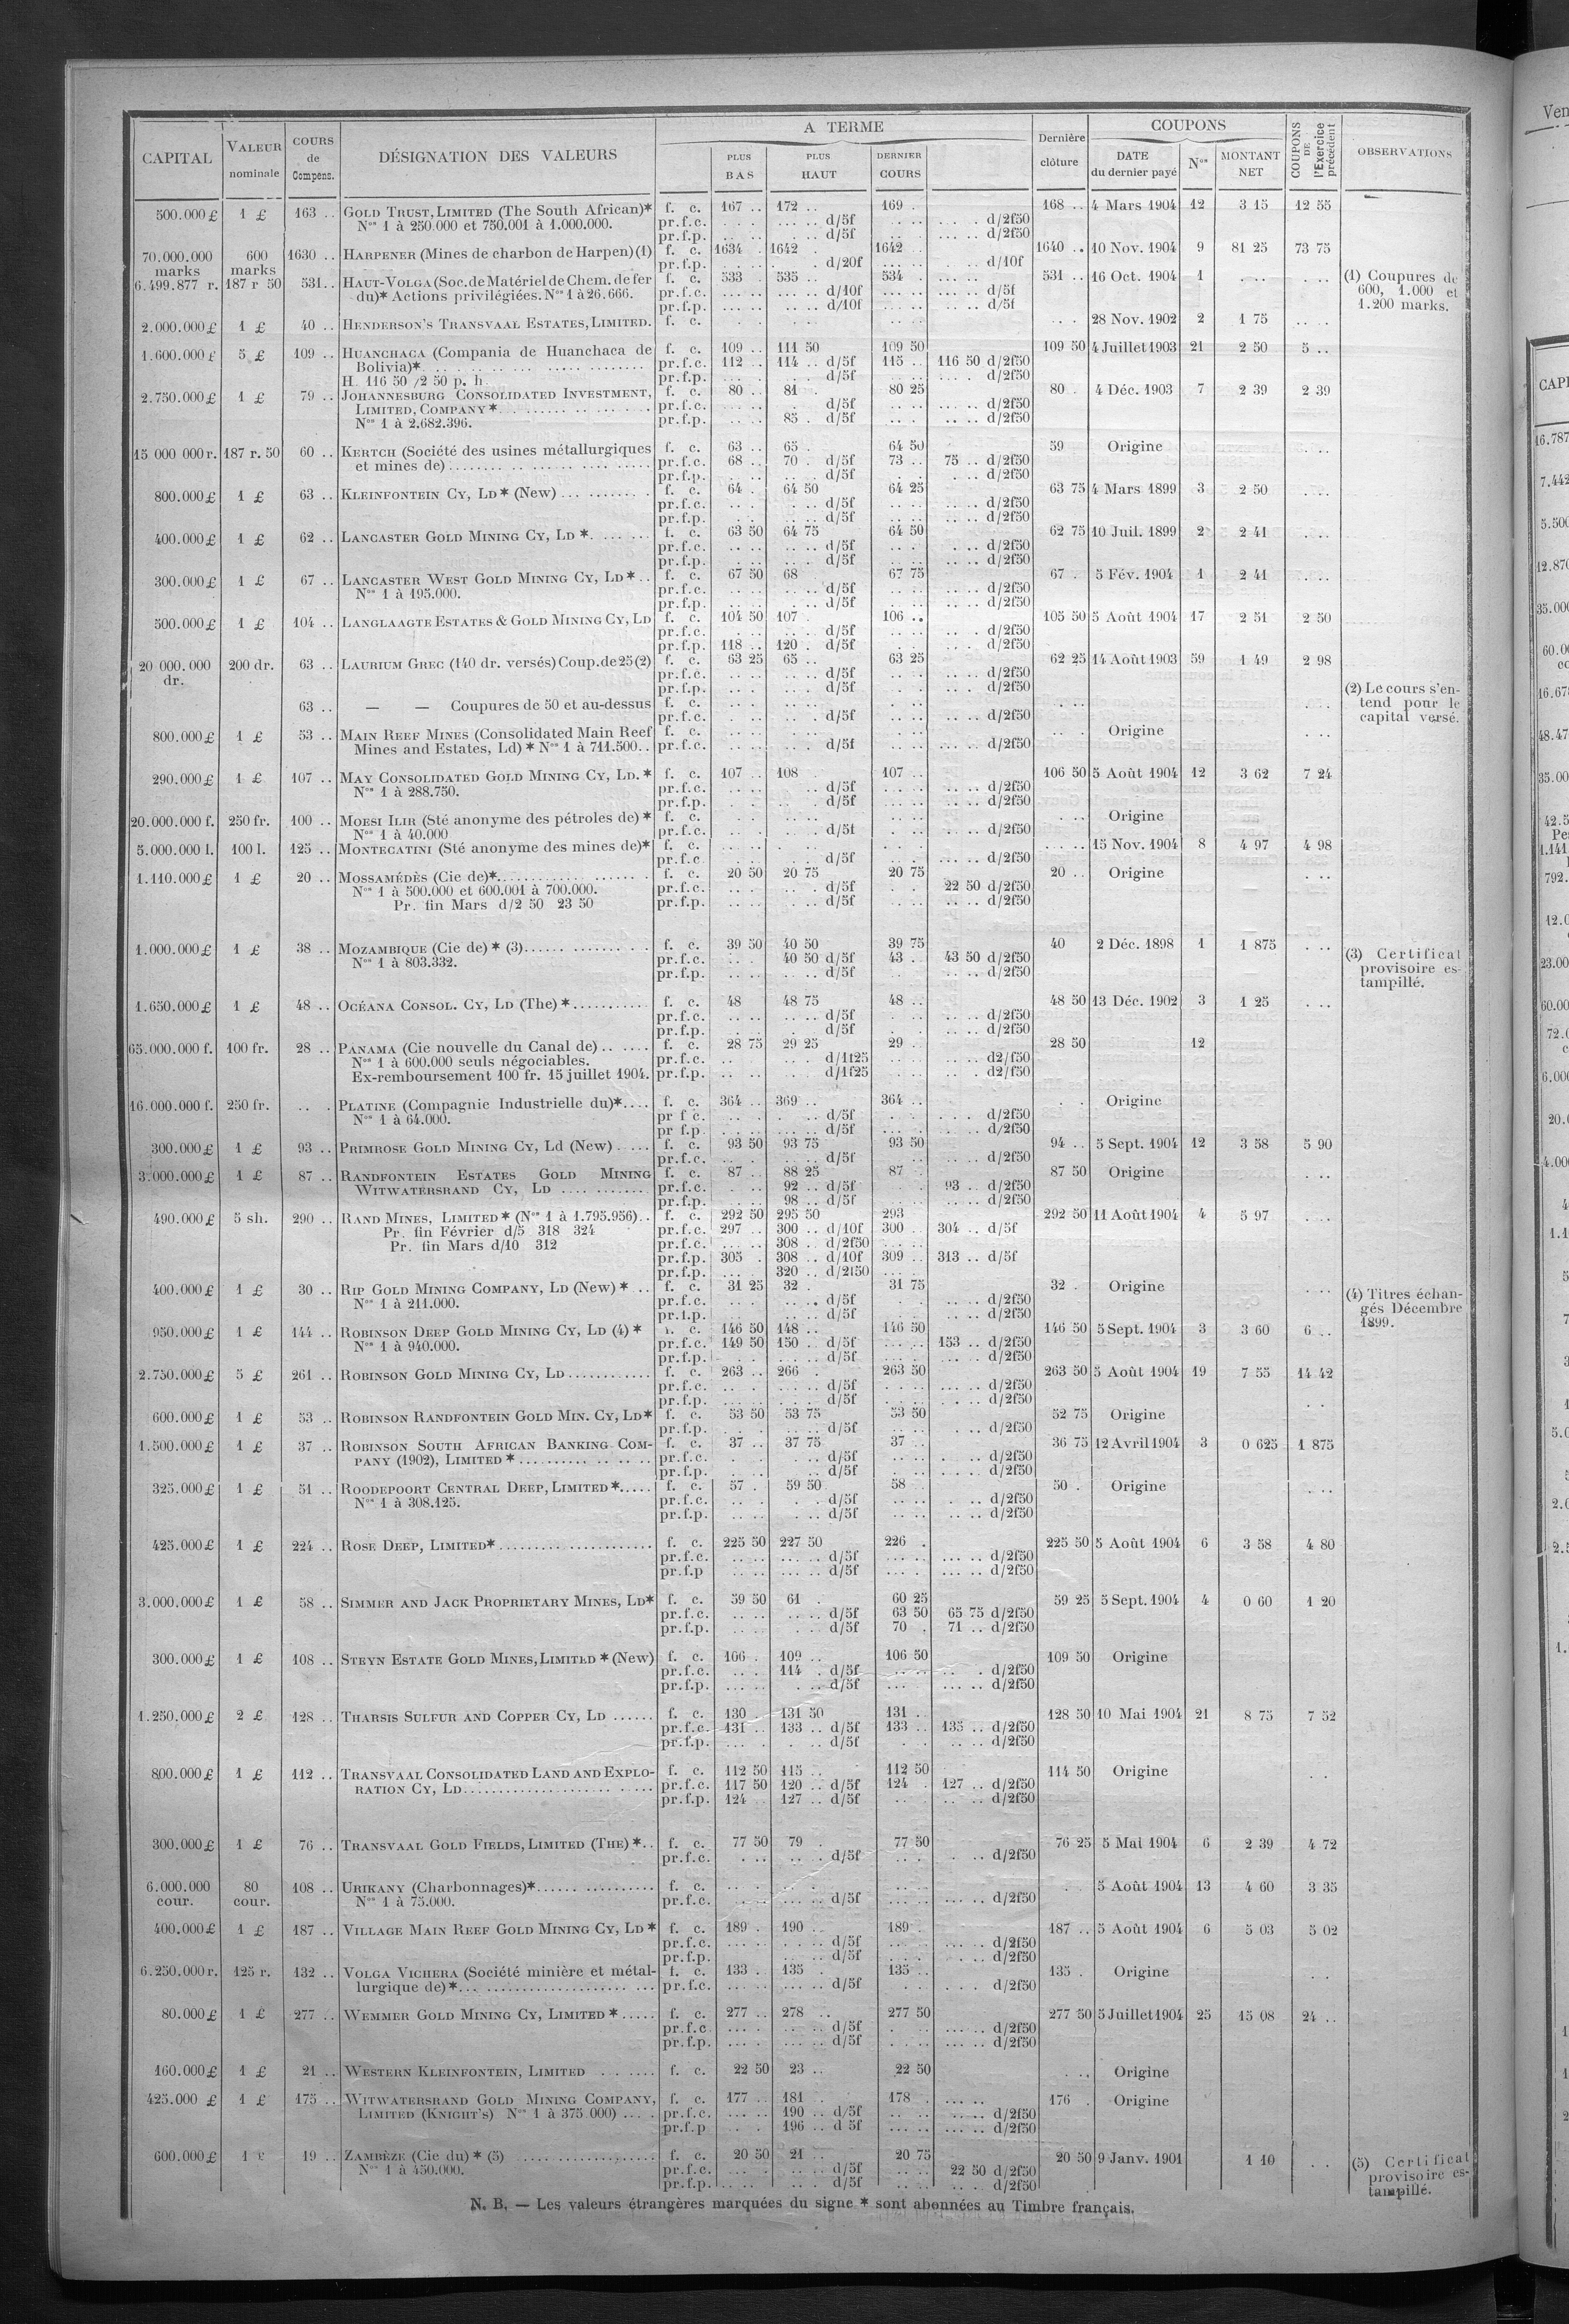 CAPITAL | VALEUR nominale | COURS de Compens. | DÉSIGNATION DES VALEURS | A TERME | PLUS BAS | PLUS HAUT | DERNIER COURS | Dernière clôture | COUPONS | DATE du dernier payé | Nos | MONTANT NET | COUPONS DE l'Exercice précédent | OBSERVATIONS
500.000 £ 1 £ 163 .. GOLD TRUST, LIMITED (The South African)* f. c. 167 .. 172 .. 169 . 168 .. 4 Mars 1904 12 3 15 12 55
Nos 1 à 250.000 et 750.001 à 1.000.000. pr.f.c. d/5f d/2f50
pr.f.p. d/5f d/2f50
70.000.000 marks 600 marks 1630 .. HARPENER (Mines de charbon de Harpen) (1) f. c. 1634 . 1642 .. 1642 .. 1640 .. 10 Nov. 1904 9 81 25 73 75
pr.f.p. d/20f d/10f
6.499.877 r. 187 r 50 531 .. HAUT-VOLGA (Soc. de Matériel de Chem. de fer f. c. 533 . 535 .. 534 . 531 .. 16 Oct. 1904 1 (1) Coupures de
du)* Actions privilégiées. Nos 1 à 26.666. pr.f.c. d/10f d/5f 600, 1.000 et
pr.f.p. d/10f d/5f 1.200 marks.
2.000.000 £ 1 £ 40 .. HENDERSON'S TRANSVAAL ESTATES, LIMITED. f. c. 28 Nov. 1902 2 1 75
1.600.000 £ 5 £ 109 .. HUANCHACA (Compania de Huanchaca de f. c. 109 .. 111 50 109 50 109 50 4 Juillet 1903 21 2 50 5 ..
Bolivia)* pr.f.c. 112 .. 114 .. d/5f 115 .. 116 50 d/2f50
H 116 50 /2 50 p. h pr.f.p. d/5f d/2f50
2.750.000 £ 1 £ 79 .. JOHANNESBURG CONSOLIDATED INVESTMENT, f. c. 80 .. 81 . 80 25 80 . 4 Déc. 1903 7 2 39 2 39
LIMITED, COMPANY * pr.f.c. d/5f d/2f50
Nos 1 à 2.682.396. pr.f.p. 85 . d/5f d/2f50
15 000 000 r. 187 r. 50 60 .. KERTCH (Société des usines métallurgiques f. c. 63 .. 65 . 64 50 59 Origine
et mines de) pr.f.c. 68 .. 70 . d/5f 73 .. 75 .. d/2f50
pr.f.p. d/5f d/2f50
800.000 £ 1 £ 63 .. KLEINFONTEIN CY, LD * (New) f. c. 64 . 64 50 64 25 63 75 4 Mars 1899 3 2 50
pr.f.c. d/5f d/2f50
pr.f.p. d/5f d/2f50
400.000 £ 1 £ 62 .. LANCASTER GOLD MINING CY, LD * f. c. 63 50 64 75 64 50 62 75 10 Juil. 1899 2 2 41
pr.f.c. d/5f d/2f50
pr.f.p. d/5f d/2f50
300.000 £ 1 £ 67 .. LANCASTER WEST GOLD MINING CY, LD * f. c. 67 50 68 67 75 67 . 5 Fév. 1904 1 2 41
Nos 1 à 195.000. pr.f.c. d/5f d/2f50
pr.f.p. d/5f d/2f50
500.000 £ 1 £ 104 .. LANGLAAGTE ESTATES & GOLD MINING CY, LD f. c. 104 50 107 . 106 .. 105 50 5 Août 1904 17 2 51 2 50
pr.f.c. d/5f d/2f50
pr.f.p. 118 .. 120 . d/5f d/2f50
20 000.000 dr. 200 dr. 63 .. LAURIUM GREC (140 dr. versés) Coup. de 25 (2) f. c. 63 25 65 .. 63 25 62 25 14 Août 1903 59 1 49 2 98
pr.f.c. d/5f d/2f50
pr.f.p. d/5f d/2f50 (2) Le cours s'en-
63 .. — — Coupures de 50 et au-dessus f. c. tend pour le
pr.f.c. d/5f d/2f50 capital versé.
800.000 £ 1 £ 53 .. MAIN REEF MINES (Consolidated Main Reef f. c. Origine
Mines and Estates, Ld) * Nos 1 à 711.500 .. pr.f.c. d/5f d/2f50
290.000 £ 1 £ 107 .. MAY CONSOLIDATED GOLD MINING CY, LD. * f. c. 107 .. 108 . 107 .. 106 50 5 Août 1904 12 3 62 7 24
Nos 1 à 288.750. pr.f.c. d/5f d/2f50
pr.f.p. d/5f d/2f50
20.000.000 f. 250 fr. 100 .. MOESI ILIR (Sté anonyme des pétroles de) * f. c. Origine
Nos 1 à 40.000 pr.f.c. d/5f d/2f50
5.000.000 l. 100 l. 125 .. MONTECATINI (Sté anonyme des mines de)* f. c. 15 Nov. 1904 8 4 97 4 98
pr.f.c d/5f d/2f50
1.110.000 £ 1 £ 20 .. MOSSAMÉDÈS (Cie de)* f. c. 20 50 20 75 20 75 20 .. Origine
Nos 1 à 500.000 et 600.001 à 700.000. pr.f.c. d/5f 22 50 d/2f50
Pr. fin Mars d/2 50 23 50 pr.f.p. d/5f d/2f50
1.000.000 £ 1 £ 38 .. MOZAMBIQUE (Cie de) * (3) f. c. 39 50 40 50 39 75 40 2 Déc. 1898 1 1 875
Nos 1 à 803.332. pr.f.c. 40 50 d/5f 43 .. 43 50 d/2f50 (3) Certificat
pr.f.p. d/5f d/2f50 provisoire es-
tampillé.
1.650.000 £ 1 £ 48 .. OCÉANA CONSOL. CY, LD (The) * f. c. 48 48 75 48 .. 48 50 13 Déc. 1902 3 1 25
pr.f.c. d/5f d/2f50
pr.f.p. d/5f d/2f50
65.000.000 f. 100 fr. 28 .. PANAMA (Cie nouvelle du Canal de) f. c. 28 75 29 25 29 . 28 50 12
Nos 1 à 600.000 seuls négociables. pr.f.c. d/1f25 d2/f50
Ex-remboursement 100 fr. 15 juillet 1904. pr.f.p. d/1f25 d2/f50
16.000.000 f. 250 fr. PLATINE (Compagnie Industrielle du)* f. c. 364 .. 369 .. 364 .. Origine
Nos 1 à 64.000. pr f c. d/5f d/2f50
pr f.p. d/5f d/2f50
300.000 £ 1 £ 93 .. PRIMROSE GOLD MINING CY, Ld (New) f. c. 93 50 93 75 93 50 94 .. 5 Sept. 1904 12 3 58 5 90
pr.f.c. d/5f d/2f50
3.000.000 £ 1 £ 87 .. RANDFONTEIN ESTATES GOLD MINING f. c. 87 .. 88 25 87 . 87 50 Origine
WITWATERSRAND CY, LD pr.f.c. 92 .. d/5f 93 .. d/2f50
pr.f.p. 98 .. d/5f d/2f50
490.000 £ 5 sh. 290 .. RAND MINES, LIMITED * (Nos 1 à 1.795.956) .. f. c. 292 50 295 50 293 292 50 11 Août 1904 4 5 97
Pr. fin Février d/5 318 324 pr.f.c. 297 . 300 .. d/10f 300 .. 304 .. d/5f
Pr. fin Mars d/10 312 pr.f.c. 308 . d/2f50
pr.f.p. 305 . 308 .. d/10f 309 .. 313 .. d/5f
pr.f.p. 320 .. d/2f50
400.000 £ 1 £ 30 .. RIP GOLD MINING COMPANY, LD (New) * f. c. 31 25 32 . 31 75 32 . Origine (4) Titres échan-
Nos 1 à 211.000. pr.f.c. d/5f d/2f50 gés Décembre
pr.f.p. d/5f d/2f50 1899.
950.000 £ 1 £ 144 .. ROBINSON DEEP GOLD MINING CY, LD (4) * f. c. 146 50 148 .. 146 50 146 50 5 Sept. 1904 3 3 60 6 ..
Nos 1 à 940.000. pr.f.c. 149 50 150 . d/5f 153 .. d/2f50
pr.f.p. d/5f d/2f50
2.750.000 £ 5 £ 261 .. ROBINSON GOLD MINING CY, LD f. c. 263 .. 266 . 263 50 263 50 5 Août 1904 19 7 55 14 42
pr.f.c. d/5f d/2f50
pr.f.p. d/5f d/2f50
600.000 £ 1 £ 53 .. ROBINSON RANDFONTEIN GOLD MIN. CY, LD* f. c. 53 50 53 75 53 50 52 75 Origine
pr.f.p. d/5f d/2f50
1.500.000 £ 1 £ 37 .. ROBINSON SOUTH AFRICAN BANKING COM- f. c. 37 .. 37 75 37 .. 36 75 12 Avril 1904 3 0 625 1 875
PANY (1902), LIMITED * pr.f.c. d/5f d/2f50
pr.f.p. d/5f d/2f50
325.000 £ 1 £ 51 .. ROODEPOORT CENTRAL DEEP, LIMITED * f. c. 57 . 59 50 58 .. 50 . Origine
Nos 1 à 308.125. pr.f.c. d/5f d/2f50
pr.f.p. d/5f d/2f50
425.000 £ 1 £ 224 .. ROSE DEEP, LIMITED* f. c. 225 50 227 50 226 . 225 50 5 Août 1904 6 3 58 4 80
pr.f.c. d/5f d/2f50
pr.f.p d/5f d/2f50
3.000.000 £ 1 £ 58 .. SIMMER AND JACK PROPRIETARY MINES, LD* f. c. 59 50 61 . 60 25 59 25 5 Sept. 1904 4 0 60 1 20
pr.f.c. d/5f 63 50 65 75 d/2f50
pr.f.p. d/5f 70 . 71 .. d/2f50
300.000 £ 1 £ 108 .. STEYN ESTATE GOLD MINES, LIMITED * (New) f. c. 106 . 109 .. 106 50 109 50 Origine
pr.f.c. 114 . d/5f d/2f50
pr.f.p. d/5f d/2f50
1.250.000 £ 2 £ 128 .. THARSIS SULFUR AND COPPER CY, LD f. c. 130 131 50 131 . 128 50 10 Mai 1904 21 8 75 7 52
pr.f.c. 131 .. 133 .. d/5f 133 .. 135 .. d/2f50
pr.f.p. d/5f d/2f50
800.000 £ 1 £ 112 .. TRANSVAAL CONSOLIDATED LAND AND EXPLO- f. c. 112 50 115 .. 112 50 114 50 Origine
RATION CY, LD pr.f.c. 117 50 120 .. d/5f 124 . 127 .. d/2f50
pr.f.p. 124 .. 127 .. d/5f d/2f50
300.000 £ 1 £ 76 .. TRANSVAAL GOLD FIELDS, LIMITED (THE) * f. c. 77 50 79 . 77 50 76 25 5 Mai 1904 6 2 39 4 72
pr.f.c. d/5f d/2f50
6.000.000 cour. 80 cour. 108 .. URIKANY (Charbonnages)* f. c. 5 Août 1904 13 4 60 3 35
Nos 1 à 75.000. pr.f.c. d/5f d/2f50
400.000 £ 1 £ 187 .. VILLAGE MAIN REEF GOLD MINING CY, LD * f. c. 189 . 190 .. 189 . 187 .. 5 Août 1904 6 5 03 5 02
pr.f.c. d/5f d/2f50
pr.f.p. d/5f d/2f50
6.250.000 r. 125 r. 132 .. VOLGA VICHERA (Société minière et métal- f. c. 133 . 135 . 135 .. 135 . Origine
lurgique de) * pr.f.c. d/5f d/2f50
80.000 £ 1 £ 277 .. WEMMER GOLD MINING CY, LIMITED * f. c. 277 .. 278 .. 277 50 277 50 5 Juillet 1904 25 15 08 24 ..
pr.f.c d/5f d/2f50
pr.f.p. d/5f d/2f50
160.000 £ 1 £ 21 .. WESTERN KLEINFONTEIN, LIMITED f. c. 22 50 23 .. 22 50 Origine
425.000 £ 1 £ 175 .. WITWATERSRAND GOLD MINING COMPANY, f. c. 177 . 181 . 178 . 176 . Origine
LIMITED (KNIGHT'S) Nos 1 à 375 000) pr.f.c. 190 .. d/5f d/2f50
pr.f.p 196 .. d 5f d/2f50
600.000 £ 1 £ 19 .. ZAMBÈZE (Cie du) * (5) f. c. 20 50 21 .. 20 75 20 50 9 Janv. 1901 1 10 (5) Certificat
Nos 1 à 450.000. pr.f.c. d/5f 22 50 d/2f50 provisoire es-
pr.f.p. d/5f d/2f50 tampillé.
N. B. — Les valeurs étrangères marquées du signe * sont abonnées au Timbre français.